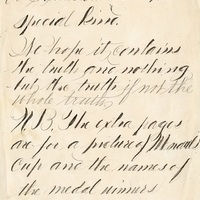 special kind.
We hope it contains
the truth and nothing
but the truth if not the
whole truth
N.B. The extra pages
are for a picture of
Cup and the names of
the medal winners